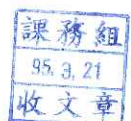 課務組
95.3.21
收文章